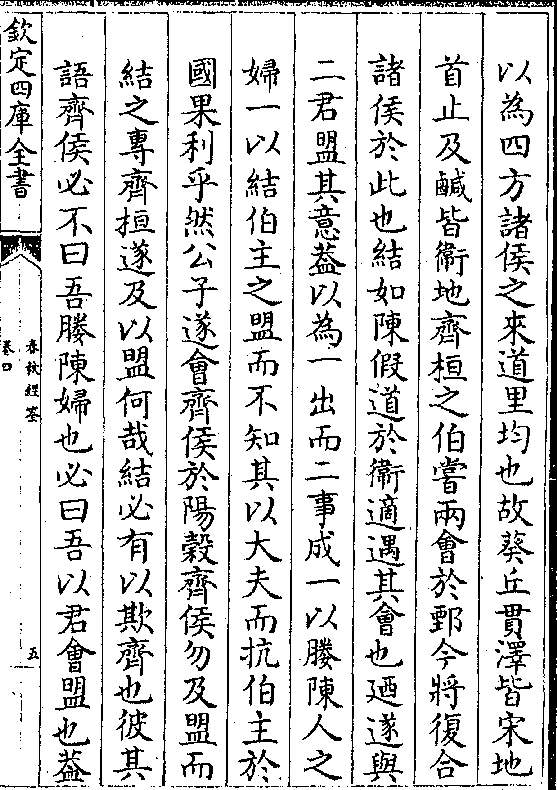 以為四方諸侯之來道里均也故葵丘貫澤皆宋地
首止及鹹皆衞地齊桓之伯嘗兩會於鄄今將復合
諸侯於此也結如陳假道於衞適遇其會也廼遂與
二君盟其意葢以為一出而二事成一以媵陳人之
婦一以結伯主之盟而不知其以大夫而抗伯主於
國果利乎然公子遂會齊侯於陽穀齊侯勿及盟而
結之專齊桓遂及以盟何哉結必有以欺齊也彼其
語齊侯必不曰吾媵陳婦也必曰吾以君會盟也葢
欽定四庫全書
春秋經筌
卷四
五